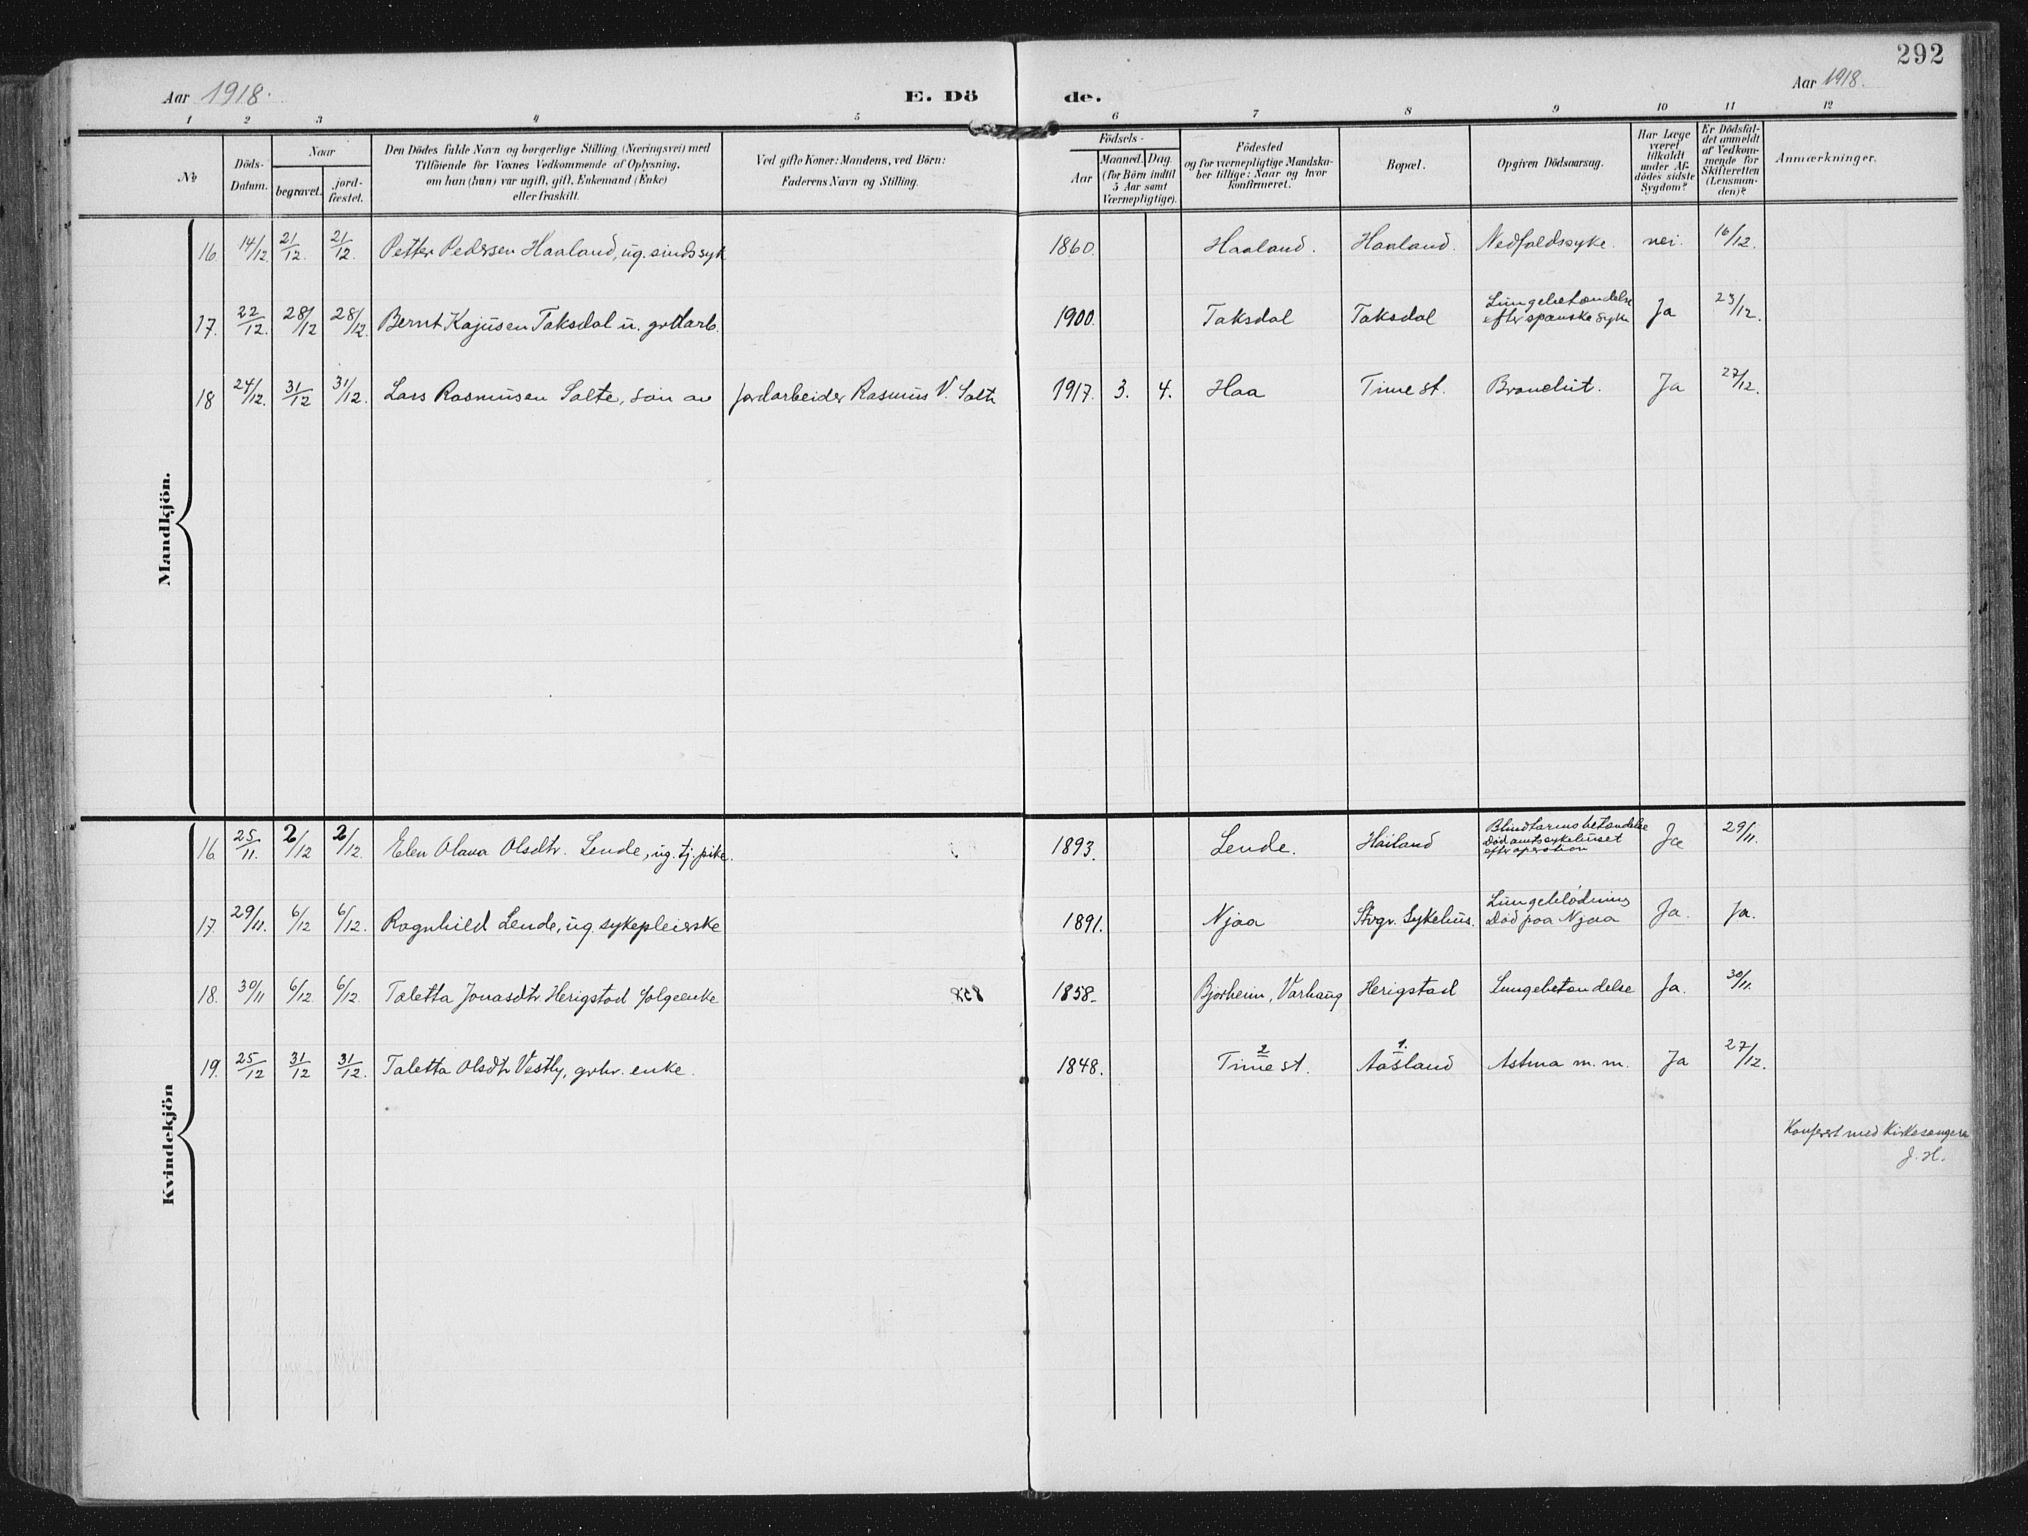 292
Aar 1918. E. Dö de. Aar 1918.
1 2 3 4 5 6 7 8 9 10 11 12
No
Döds-Datum.
Naar
begravet. jordfæstet.
Den Dödes fulde Navn og borgerlige Stilling (Næringsvei) med
Tilföiende for Voxnes Vedkommende af Oplysning,
om han (hun) var ugift, gift, Enkemand (Enke)
eller fraskilt.
Ved gifte Koner: Mandens, ved Börn:
Faderens Navn og Stilling.
Födsels-
Aar
Maaned. Dag.
(for Börn indtil
5 Aar samt
Værnepligtige).
Födested
og for værnepligtige Mandskaber
tillige: Naar og hvor
Konfirmeret.
Bopæl.
Opgiven Dödsaarsag.
Har Læge
været
tilkaldt
under Afdödes
sidste
Sygdom?
Er Dödsfaldet
anmeldt
af Vedkommende
for
Skifteretten
(Lensmanden)?
Anmærkninger.
Mandkjön.
16. 14/12. 21/12. 21/12. Petter Pedersen Haaland, ug. sindssyk 1860. Haaland. Haaland. Nedfaldssyke. nei. 16/12.
17. 22/12. 28/12 28/12. Bernt Kajusen Taksdal u. grdarb. 1900. Taksdal Taksdal Lungebetændelse efter spanske syke Ja 23/12.
18 24/12. 31/12 31/12. Lars Rasmusen Salte, søn av jordarbeider Rasmus V. Salte 1917. 3. 4. Haa Time st. Brandsut. Ja 27/12.
Kvindekjön
16. 25/11. 2/12 2/12. Elen Olava Olsdtr. Lende, ug. tj. pike. 1893. Lende. Hailand Blindtarmsbetændelse Død amtssykehuset efter operation Ja 29/11.
17. 29/11. 6/12 6/12. Ragnhild Lende, ug. sykepleierske 1891. Njaa Stvgr. Sykehus. Lungeblødning Død paa Njaa Ja. Ja.
18. 30/11 6/12 6/12. Taletta Jonasdtr Herigstad folgeenke 1858. Bjorheim, Varhaug Herigstad Lungebetændelse Ja. 30/11.
19. 25/12 31/12 31/12. Taletta Olsdtr Vestly, grbr. enke. 1848. 2 Time st. 1. Aasland Astma m. m. Ja 27/12.
Konferert med Kirkesangeren
J. H.